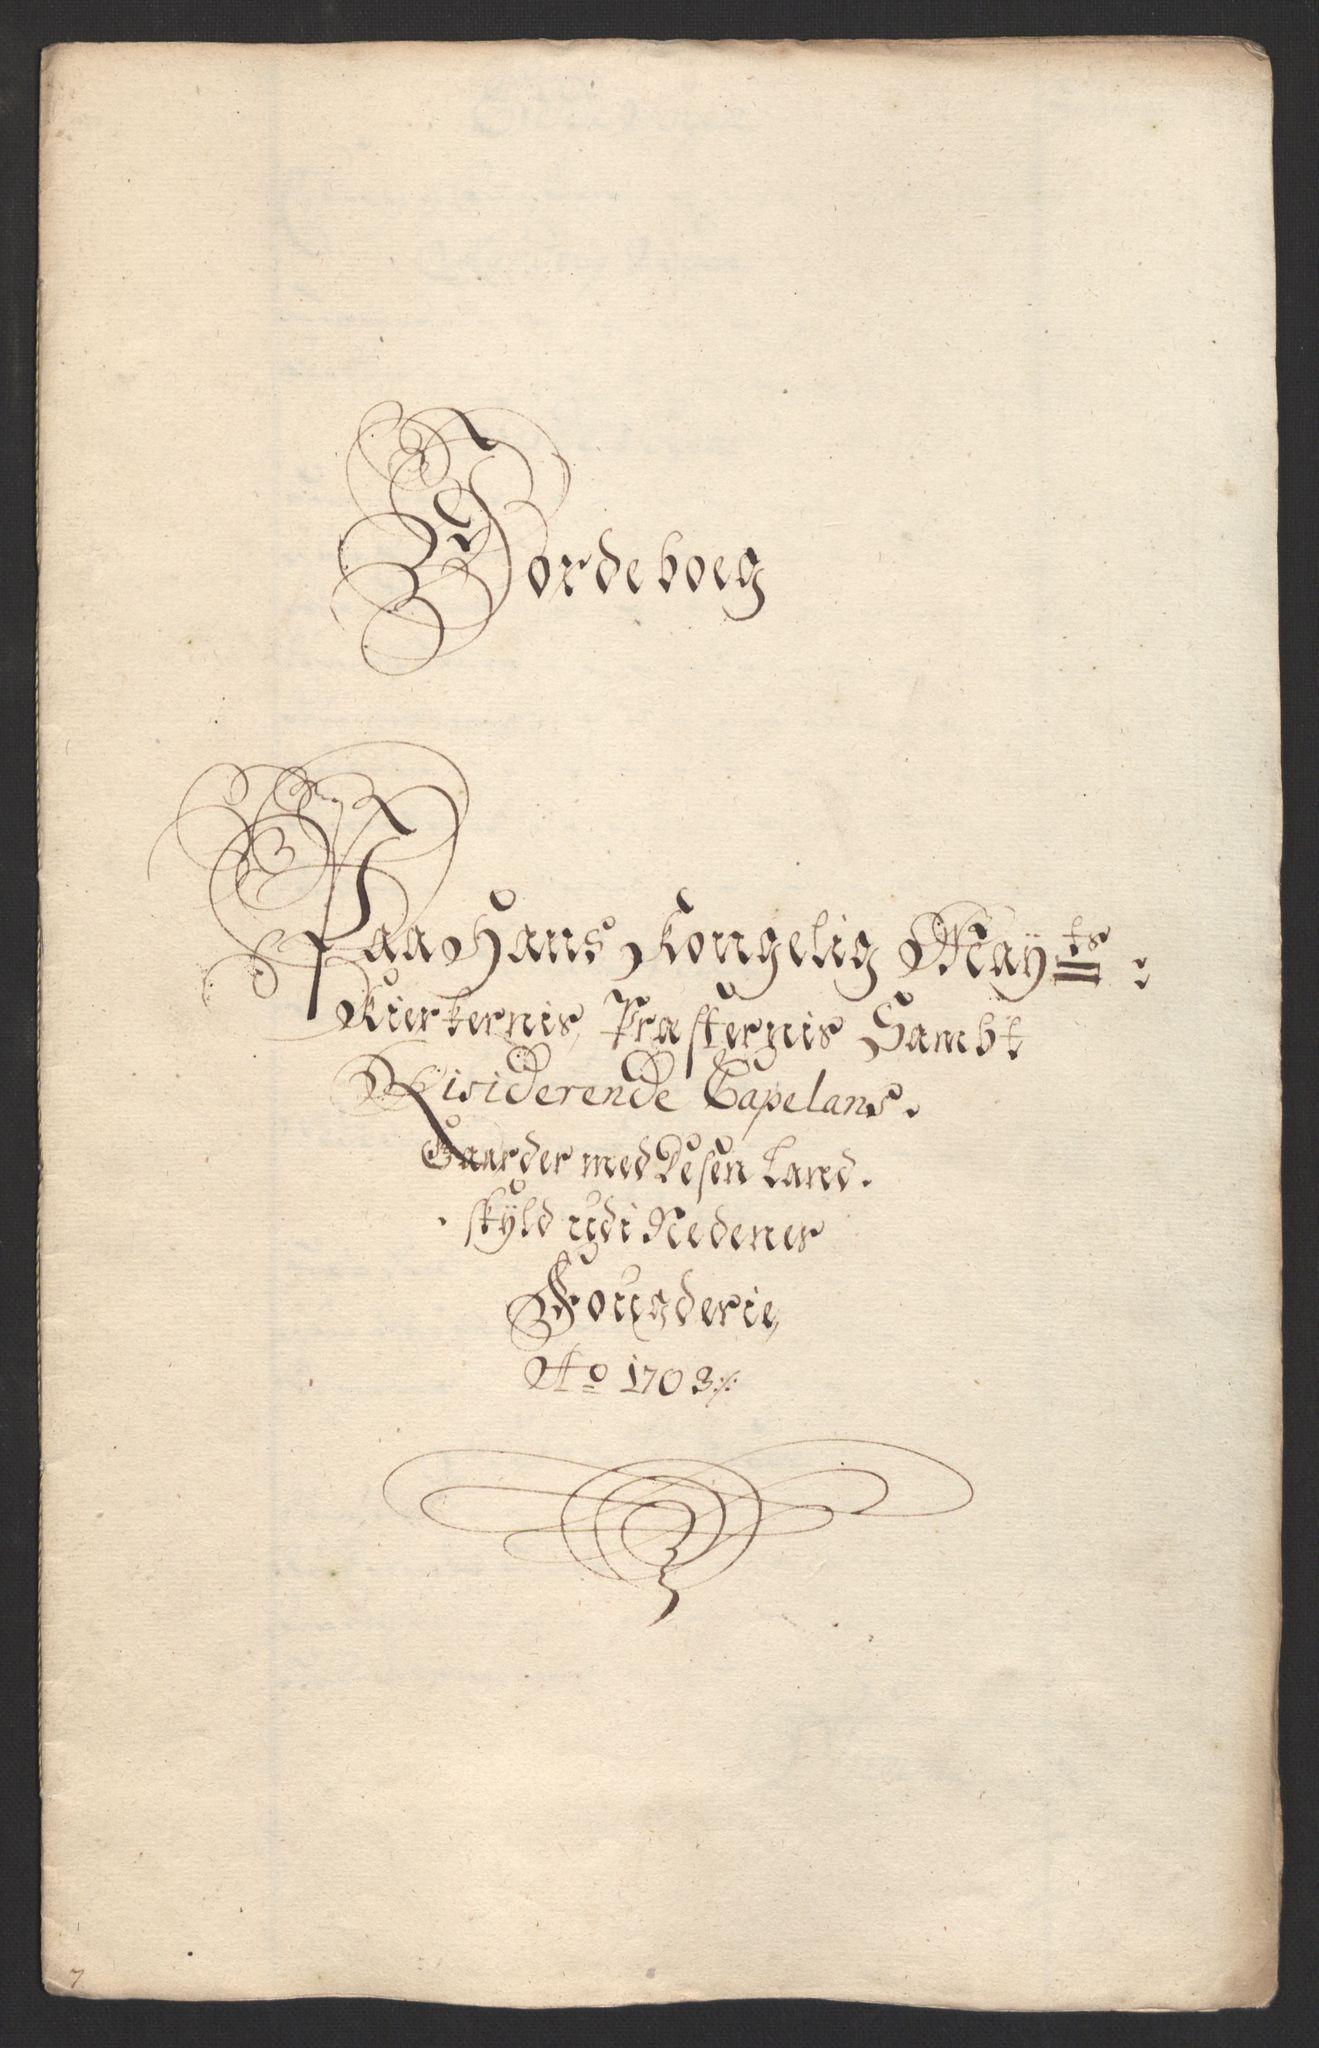 Jordeboeg
Paa Hans Kongelig Mayts:
Kierkernis, Præsternis Sambt
Risiderende Capelans.
Gaarder med Desen Land.
skÿld udi Nedenes
Fougderie,
Ao 1703 ⁒
7